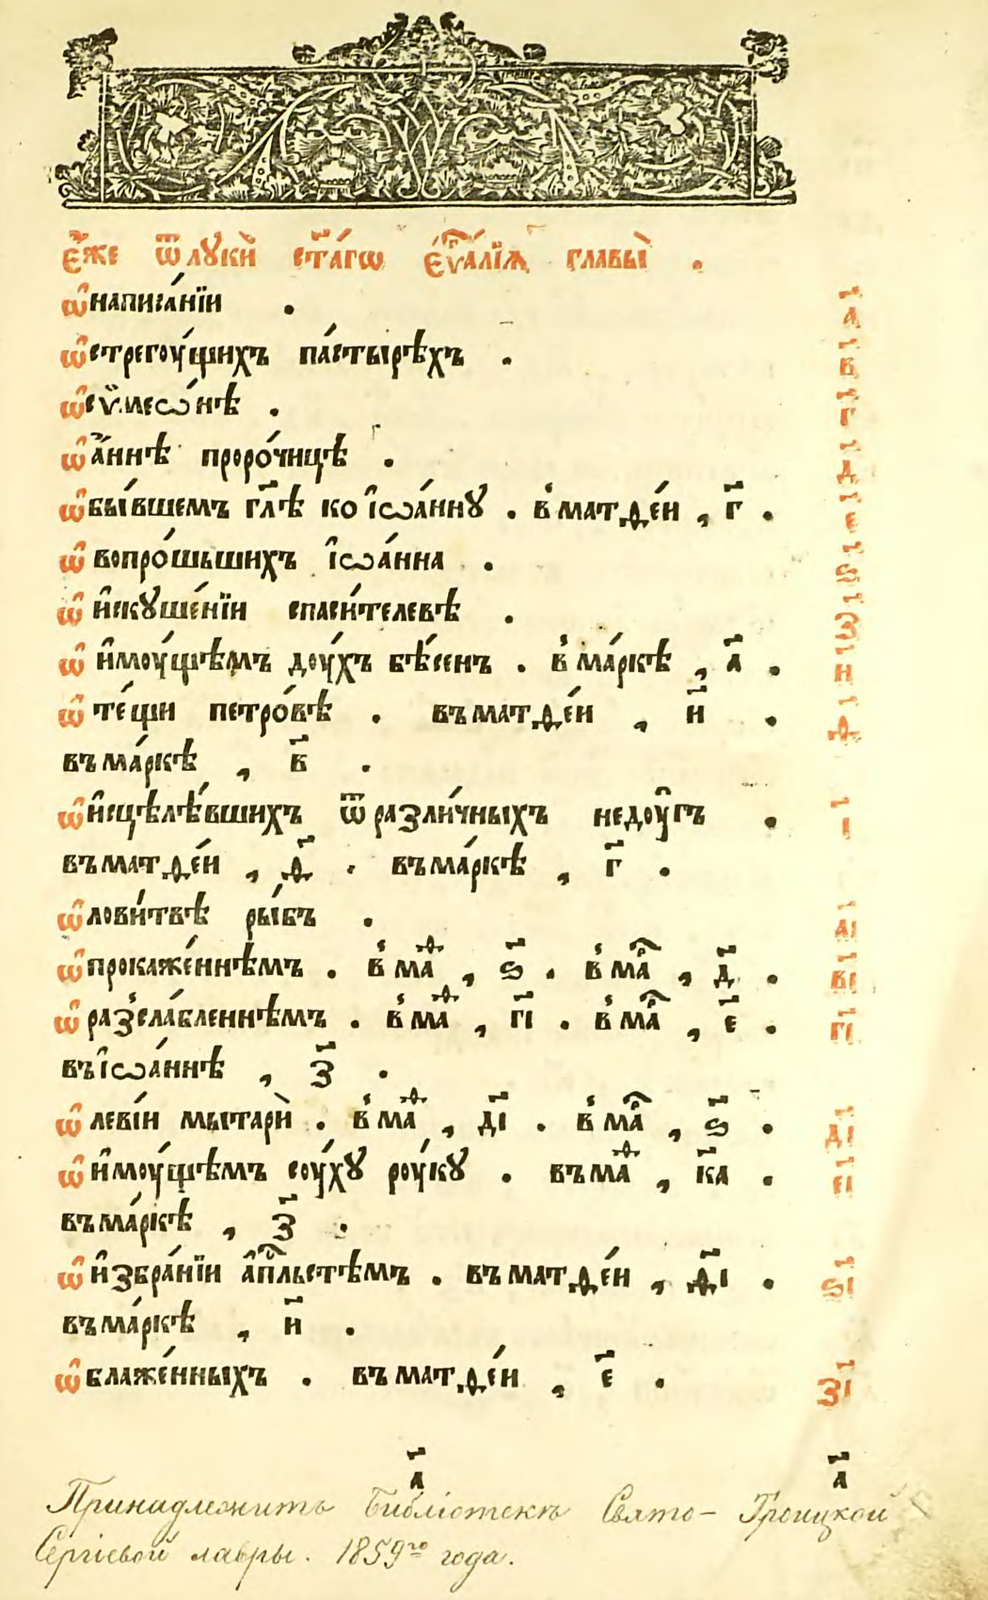 Е҆́же ѿ лꙋкѝ ст҃а́гѡ є҆ѵⷢ҇а́лїѧ главы̀ .
ѡ҆ написа́нїи . а҃
ѡ҆ стрегоу́щихъ па́стырѣхъ . в҃
ѡ҆ сѷмеѡ́нѣ . г҃
ѡ҆ а҆́ннѣ проро́чицѣ . д҃
ѡ҆ бы́вшемъ гл҃ѣ ко і҆ѡа́ннꙋ . в̾ матѳе́и , г҃ . є҃
ѡ҆ вопро́шьшихъ і҆ѡа́нна . ѕ҃
ѡ҆ и҆скꙋше́нїи спаси́телевѣ . з҃
ѡ҆ и҆моу́щѣмъ доу́хъ бѣ́сенъ . в̾ ма́ркѣ , а҃ . и҃
ѡ҆ те́щи петро́вѣ . въ матѳе́и , и҃ . ѳ҃
въ ма́ркѣ , в҃ .
ѡ҆ и҆сцѣлѣ́вшихъ ѿ разли́чныхъ недоу҆гъ . і҃
въ матѳе́и , ѳ҃ . въ ма́ркѣ , г҃ .
ѡ҆ лови́твѣ ры́бъ . а҃і
ѡ҆ прокаже́ннѣмъ . в̾ маⷴ҇ , ѕ҃ . в̾ маⷬ҇ , д҃ . в҃і
ѡ҆ раз̾сла́бленнѣмъ . в̾ маⷴ҇ , г҃і . в̾ маⷬ҇ , є҃ . г҃і
въ і҆ѡа́ннѣ , з҃ .
ѡ҆ леві́и мытарѝ . в̾ маⷴ҇ , д҃і . в̾ маⷬ҇ , ѕ҃ . д҃і
ѡ҆ и҆моу́щѣмъ соу́хꙋ роу́кꙋ . въ маⷴ҇ , к҃а . є҃і
въ ма́ркѣ , з҃ .
ѡ҆ и҆збра́нїи а҆пⷭ҇льстѣмъ . въ матѳе́и , ѳ҃і . ѕ҃і
въ ма́ркѣ , и҃ .
ѡ҆ блаже́нныхъ . въ матѳе́и , є҃ . з҃і
а҃ а҃
Принадлежитъ Библіотекѣ Свято-Троицкой
Сергіевой лавры. 1859го года.